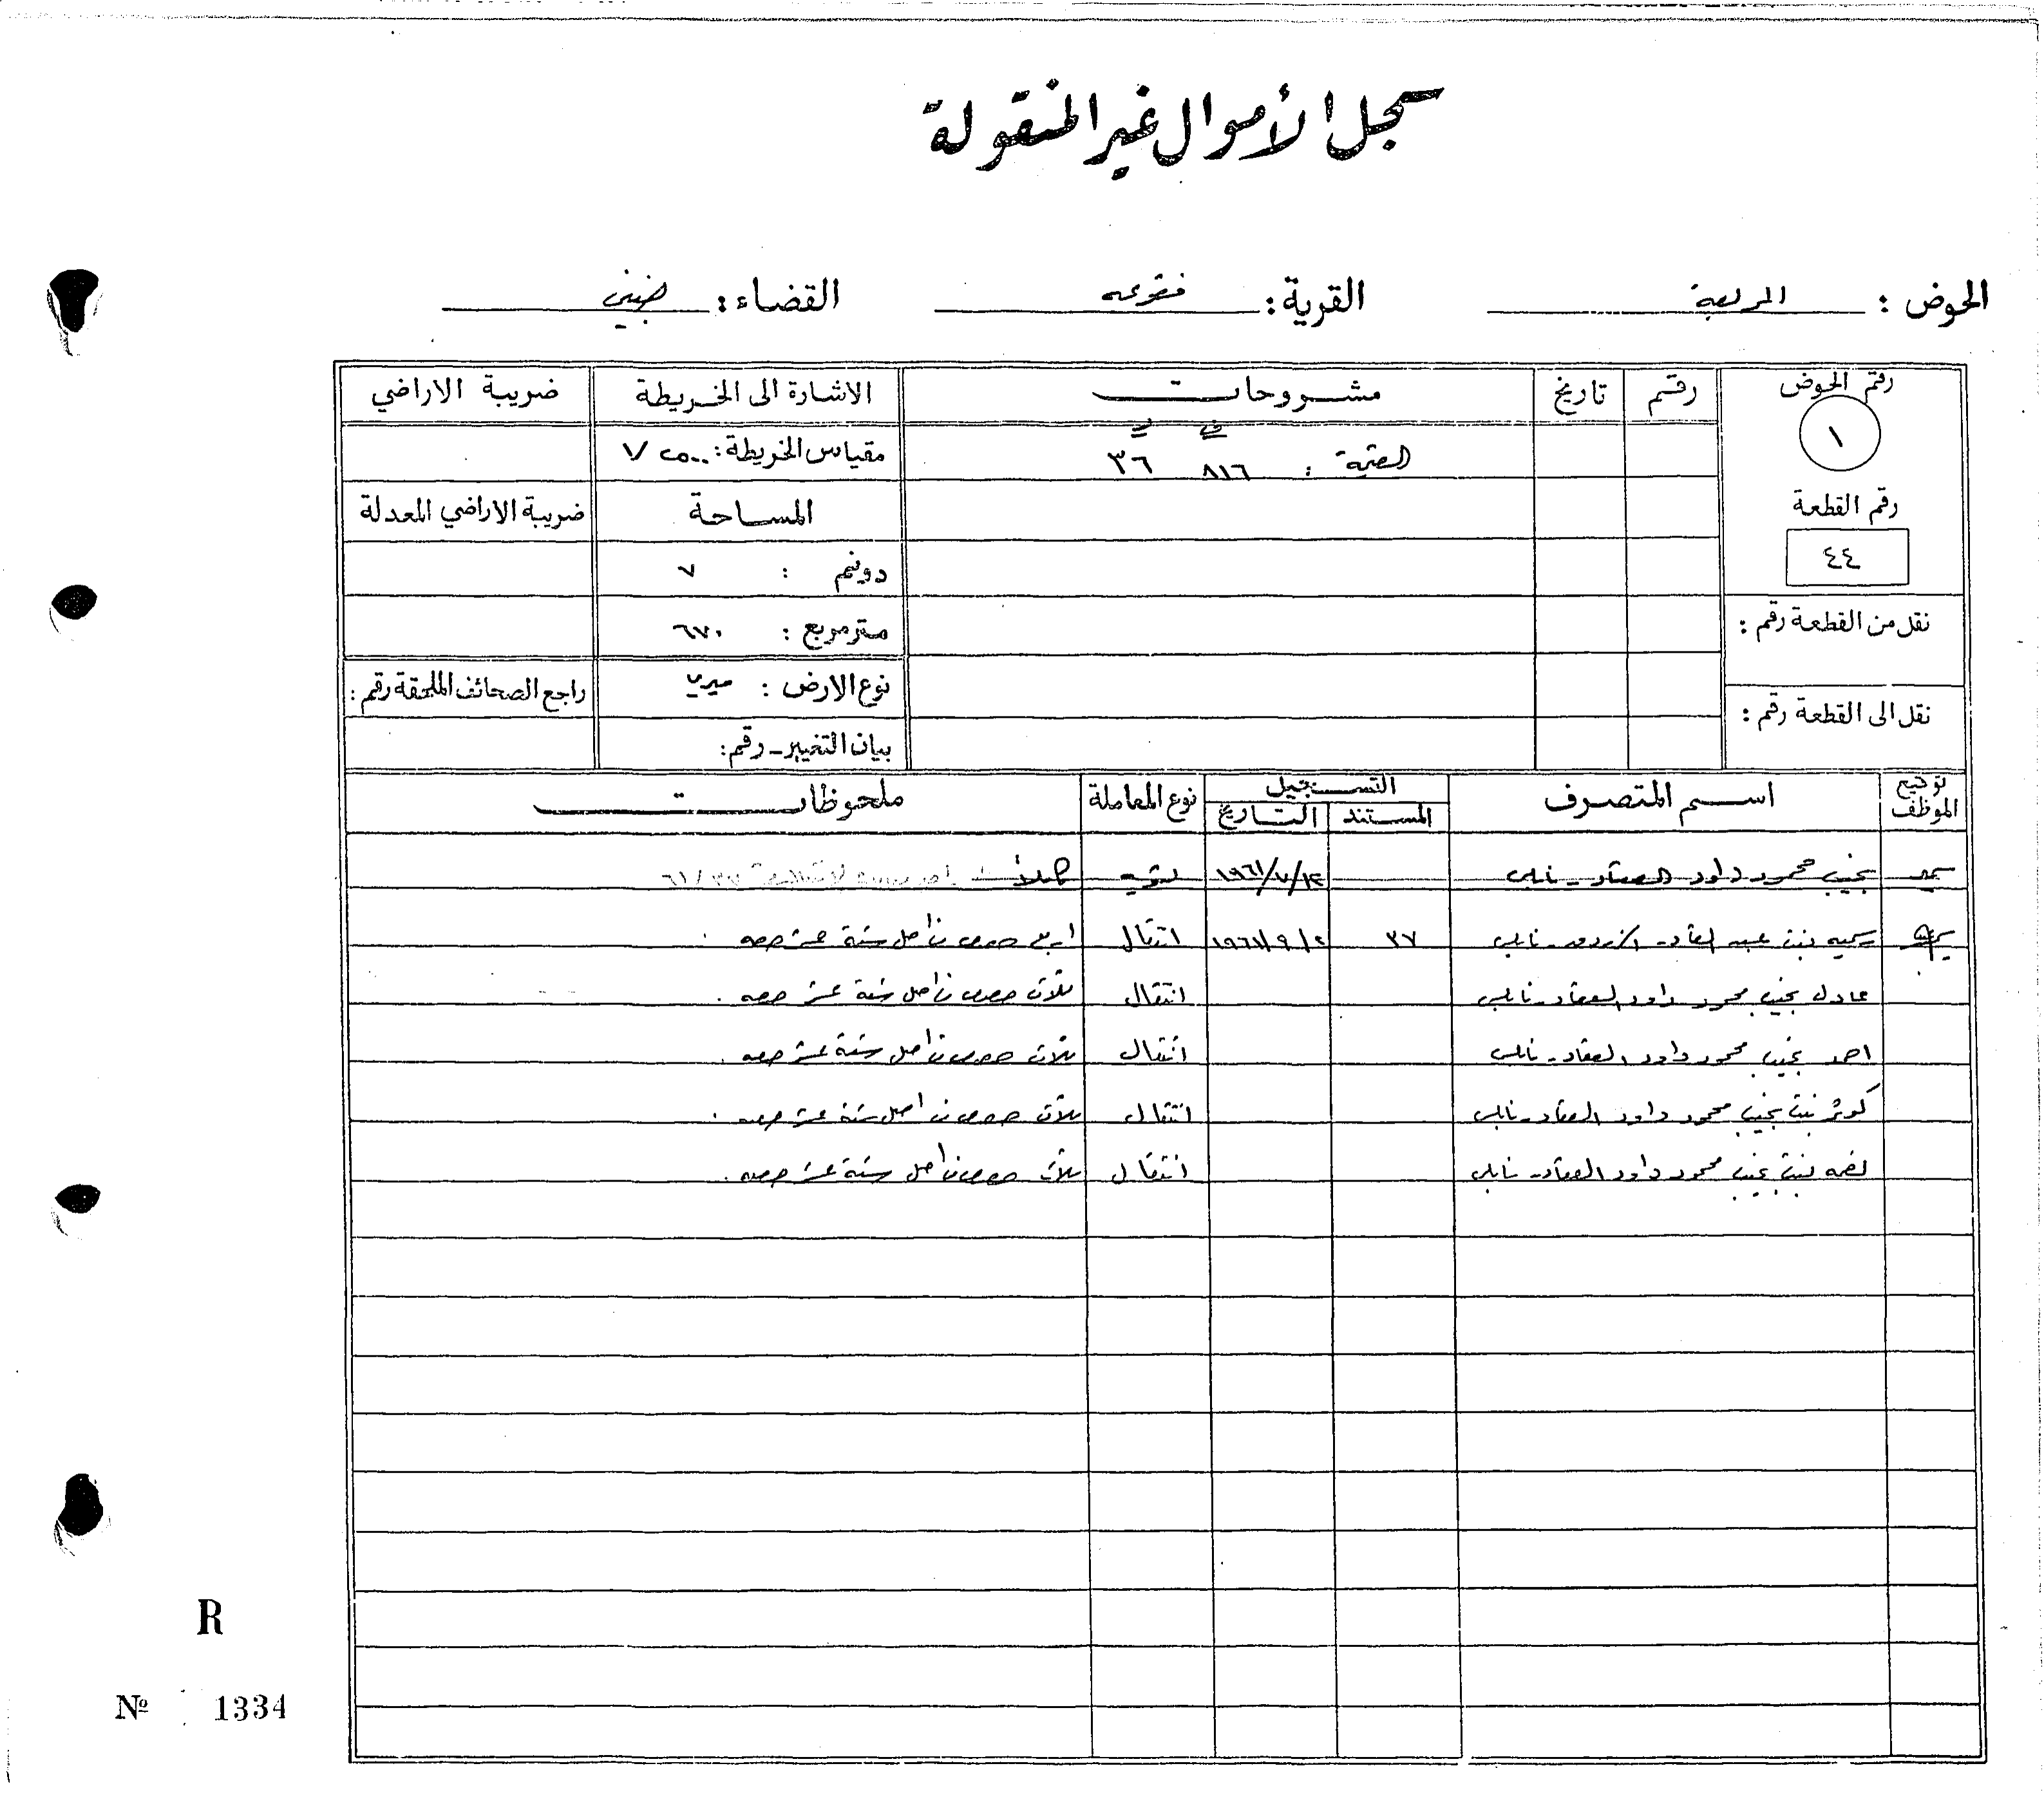 سجل الأموال غير المنقولة
الحوض : المربعة القرية : فقوعه القضاء : جنين
رقم الحوض رقم تاريخ مشروحات الاشارة الى الخريطة ضريبة الاراضي
١
ف د
القيمة : ٨١٦ ٣٦
مقياس الخريطة : ١/٢٥٠٠
رقم القطعة
٤٤
المساحة ضريبة الاراضي المعدلة
دونم : ٧
نقل من القطعة رقم :
متر مربع : ٦٧٠
نوع الارض : ميري راجع الصحائف الملحقة رقم :
نقل الى القطعة رقم :
بيان التغيير - رقم :
توقيع الموظف اسم المتصرف التسجيل نوع المعاملة ملحوظات
المستند التاريخ
نجيب محمود داود العقاد - نابلس ١٩٦١/٧/١٢ تسوية كاملاً
سميه بنت عبد القادر - نابلس ٣٧ ١٩٦١/٩/٢ انتقال اربع حصص من اصل ستة عشر حصه .
عادل نجيب محمود داود العقاد - نابلس انتقال ثلاث حصص من اصل ستة عشر حصه .
احمد نجيب محمود داود العقاد - نابلس انتقال ثلاث حصص من اصل ستة عشر حصه .
كوثر بنت نجيب محمود داود العقاد - نابلس انتقال ثلاث حصص من اصل ستة عشر حصه .
بنت نجيب محمود داود العقاد - نابلس انتقال ثلاث حصص من اصل ستة عشر حصه .
R
№ 1334